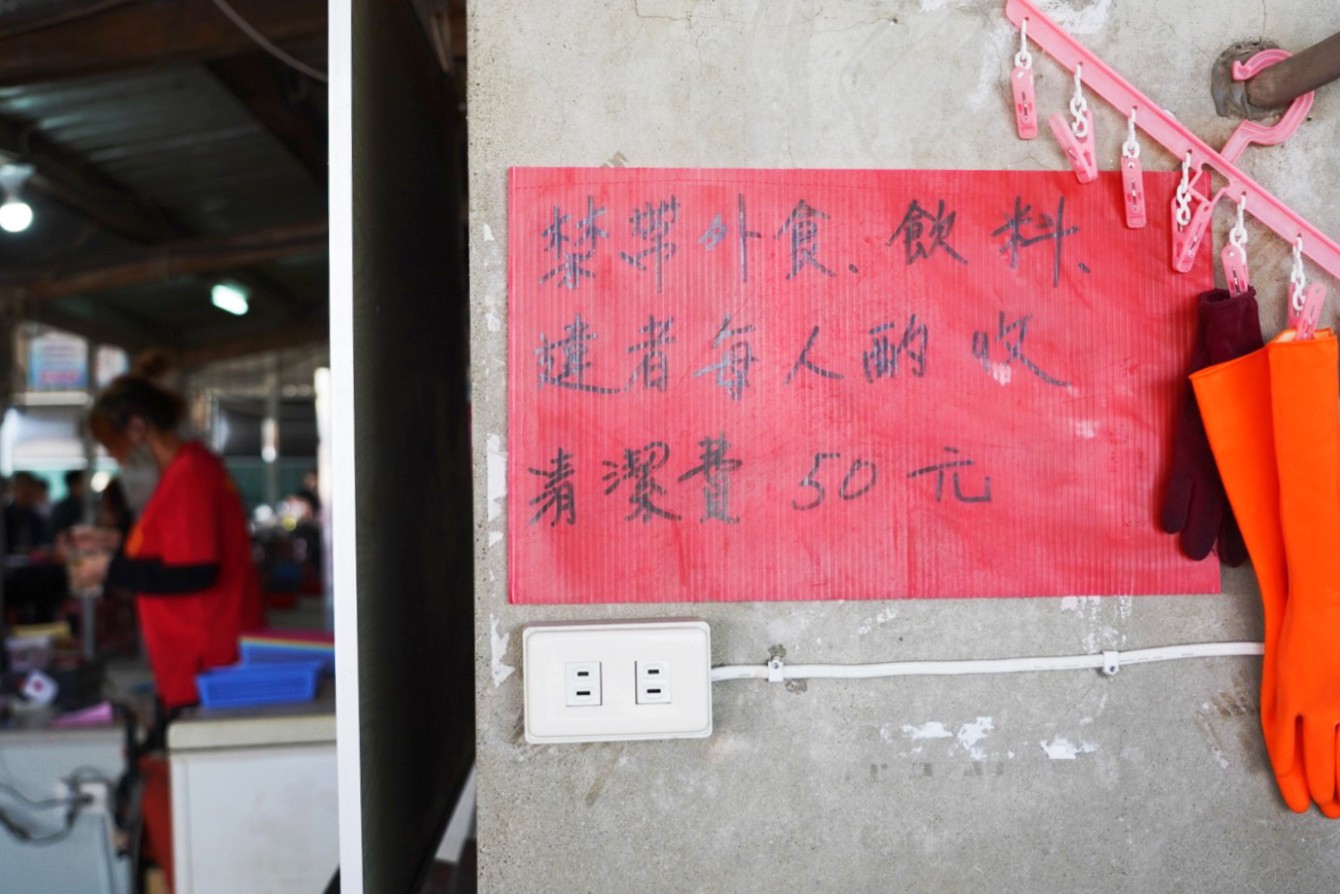 禁帶外食、飲料、
違者每人酌收
清潔費 50 元